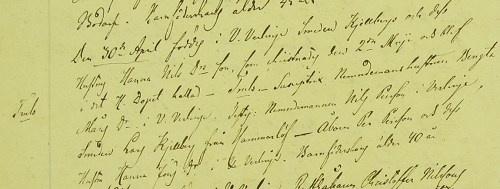 Barnföderskans ålder 43 år
Den 30th April föddes i V. Verlinge Smeden Kjellbergs och dess
Hustru Hanna Nils Dr Son, som christnades den 2dra Maji och blef
i det H. Dopet kallad — Truls — Susceptrix Nämndemanshustrun Bengta
Truls
Mårs Dr i V. Verlinge. Testes: Nämndemannen Nils Persson i Verlinge,
Smeden Lars Kjellberg från Hammarlöf — Åboen Per Persson och dess
Hustru Hanna Jöns Dr i V. Verlinge. Barnföderskans ålder 40 år
Christoffer Nilssons